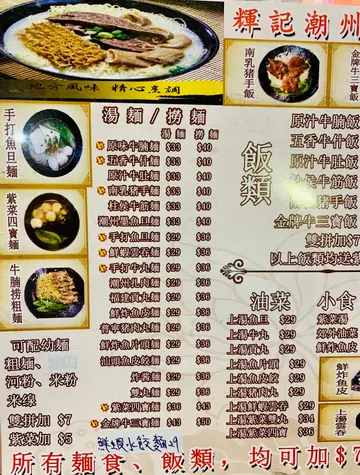 輝記潮州
地方風味 精心烹調
南乳豬手飯
金牌牛三
手打魚旦麵
紫菜四寶麵
牛腩撈粗麵
湯麵 / 撈麵
湯麵 撈麵
原味牛腩麵 $33 $40
五香牛什麵 $33 $40
原汁牛肚麵 $33 $40
南乳豬手麵 $33 $40
柱侯牛筋麵 $33 $40
潮州墨魚旦麵 $29 $36
手打魚旦麵 $29 $36
鮮蝦雲吞麵 $29 $36
手打牛丸麵 $29 $36
潮州扎肉麵 $29 $36
福建貢丸麵 $29 $36
鮮炸魚皮麵 $29 $36
普寧豬肉丸麵 $29 $36
鮮炸魚片頭麵 $29 $36
汕頭魚皮餃麵 $29 $36
炸醬麵 $29 $36
雙丸麵 $29 $36
紫菜四寶麵 $36 $43
金牌牛三寶麵 $43 $50
鮮蝦水餃麵
飯類
原汁牛腩飯
五香牛什
原汁牛肚飯
柱侯牛筋飯
豬手飯
金牌牛三寶飯
雙拼加$7
以上飯類均送
油菜
上湯魚旦 $29
上湯牛丸 $29
上湯貢丸 $29
上湯魚片頭 $29
上湯魚皮餃 $29
上湯豬肉丸 $29
上湯鮮蝦雲吞 $29
上湯紫菜雙丸 $34
上湯紫菜四寶 $29
小食
紫菜湯
郊外油菜
鮮炸魚皮
鮮炸魚皮
上湯雲吞
可配幼麵
粗麵、
河粉、米粉
米線
雙拼加 $7
紫菜加 $5
所有麵食、飯類，均可加$